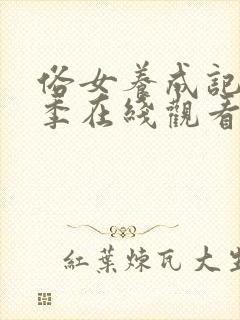 俗女养成記
季在綫觀看
紅葉煉瓦大生